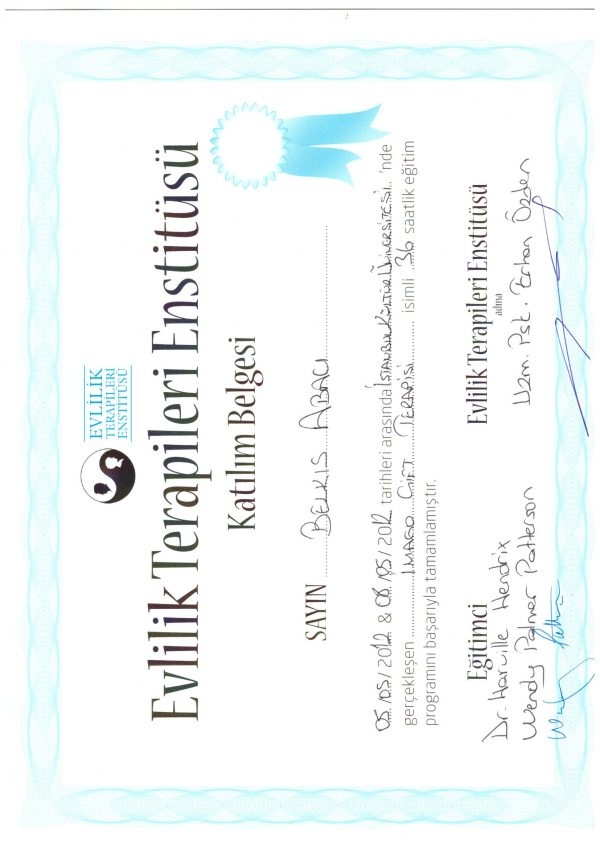 EVLİLİK
TERAPİLERİ
ENSTİTÜSÜ
Evlilik Terapileri Enstitüsü
Katılım Belgesi
SAYIN BELKIS ABACI
05/05/2012 & 08/05/2012 tarihleri arasında İSTANBUL KÜLTÜR ÜNİVERSİTESİ 'nde
gerçekleşen IMAGO ÇİFT TERAPİSİ isimli 36 saatlik eğitim
programını başarıyla tamamlamıştır.
Eğitimci
Dr. Harville Hendrix
Wendy Palmer Patterson
Evlilik Terapileri Enstitüsü
adına
Uzm. Psk. Erhan Özden